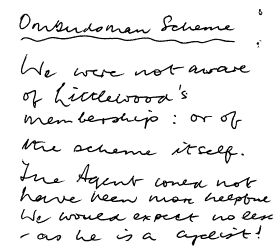 Ombudsman Scheme
We were not aware
of Littlewood's
membership : or of
the scheme itself.
The Agent could not
have been more helpful
We would expect no less
- as he is a cyclist!